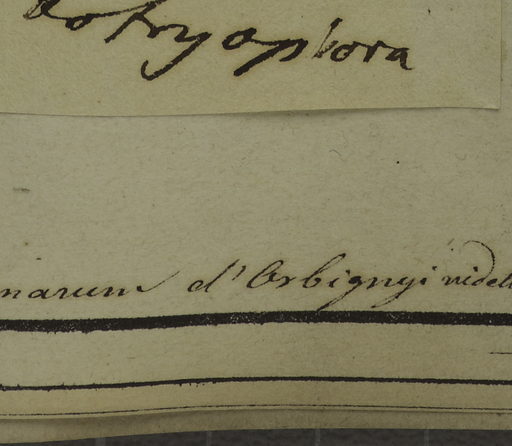 botryophora
narum d'Orbignyi videt